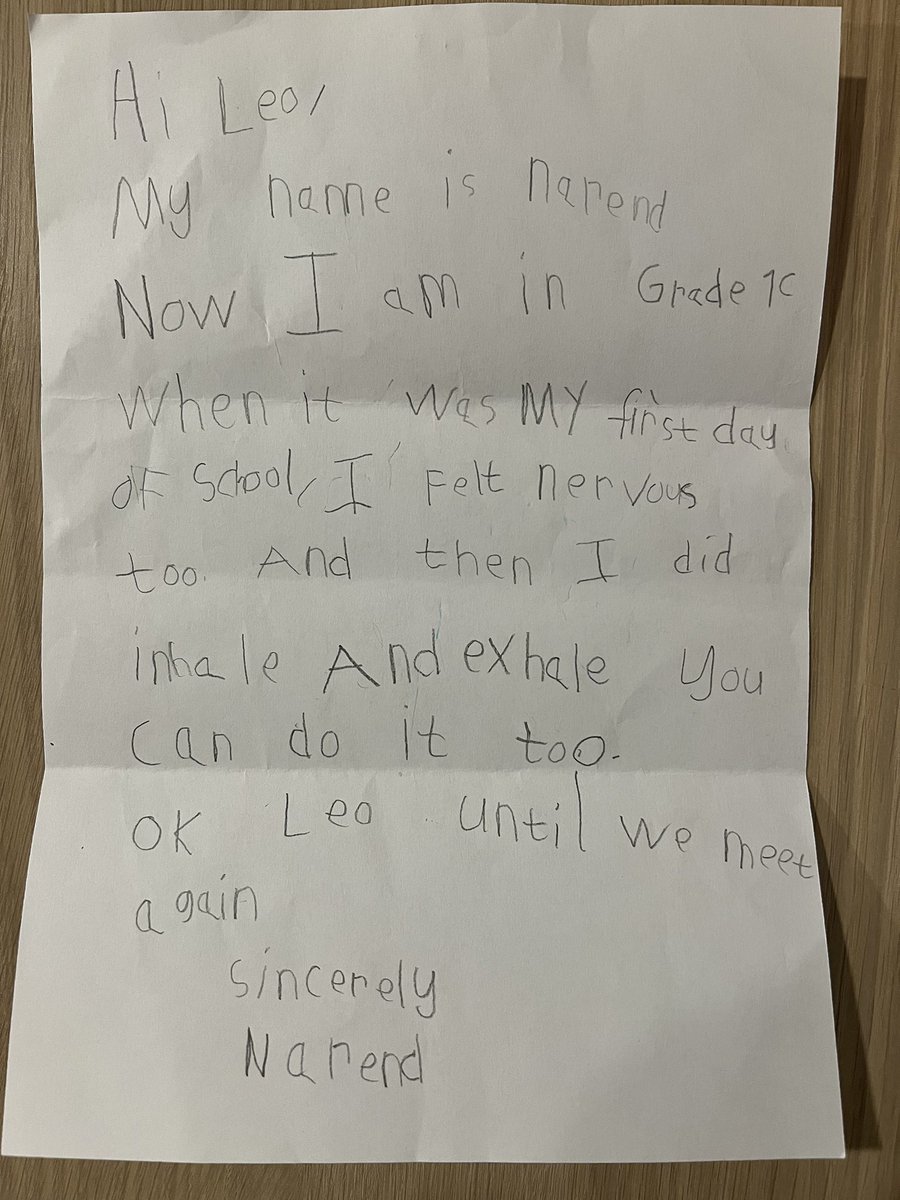 Hi Leo,
My name is narend
Now I am in Grade 1c
When it was MY first day
OF School, I Felt nervous
too. And then I did
inhale And exhale you
Can do it too.
OK Leo until we meet
again
Sincerely
Narend